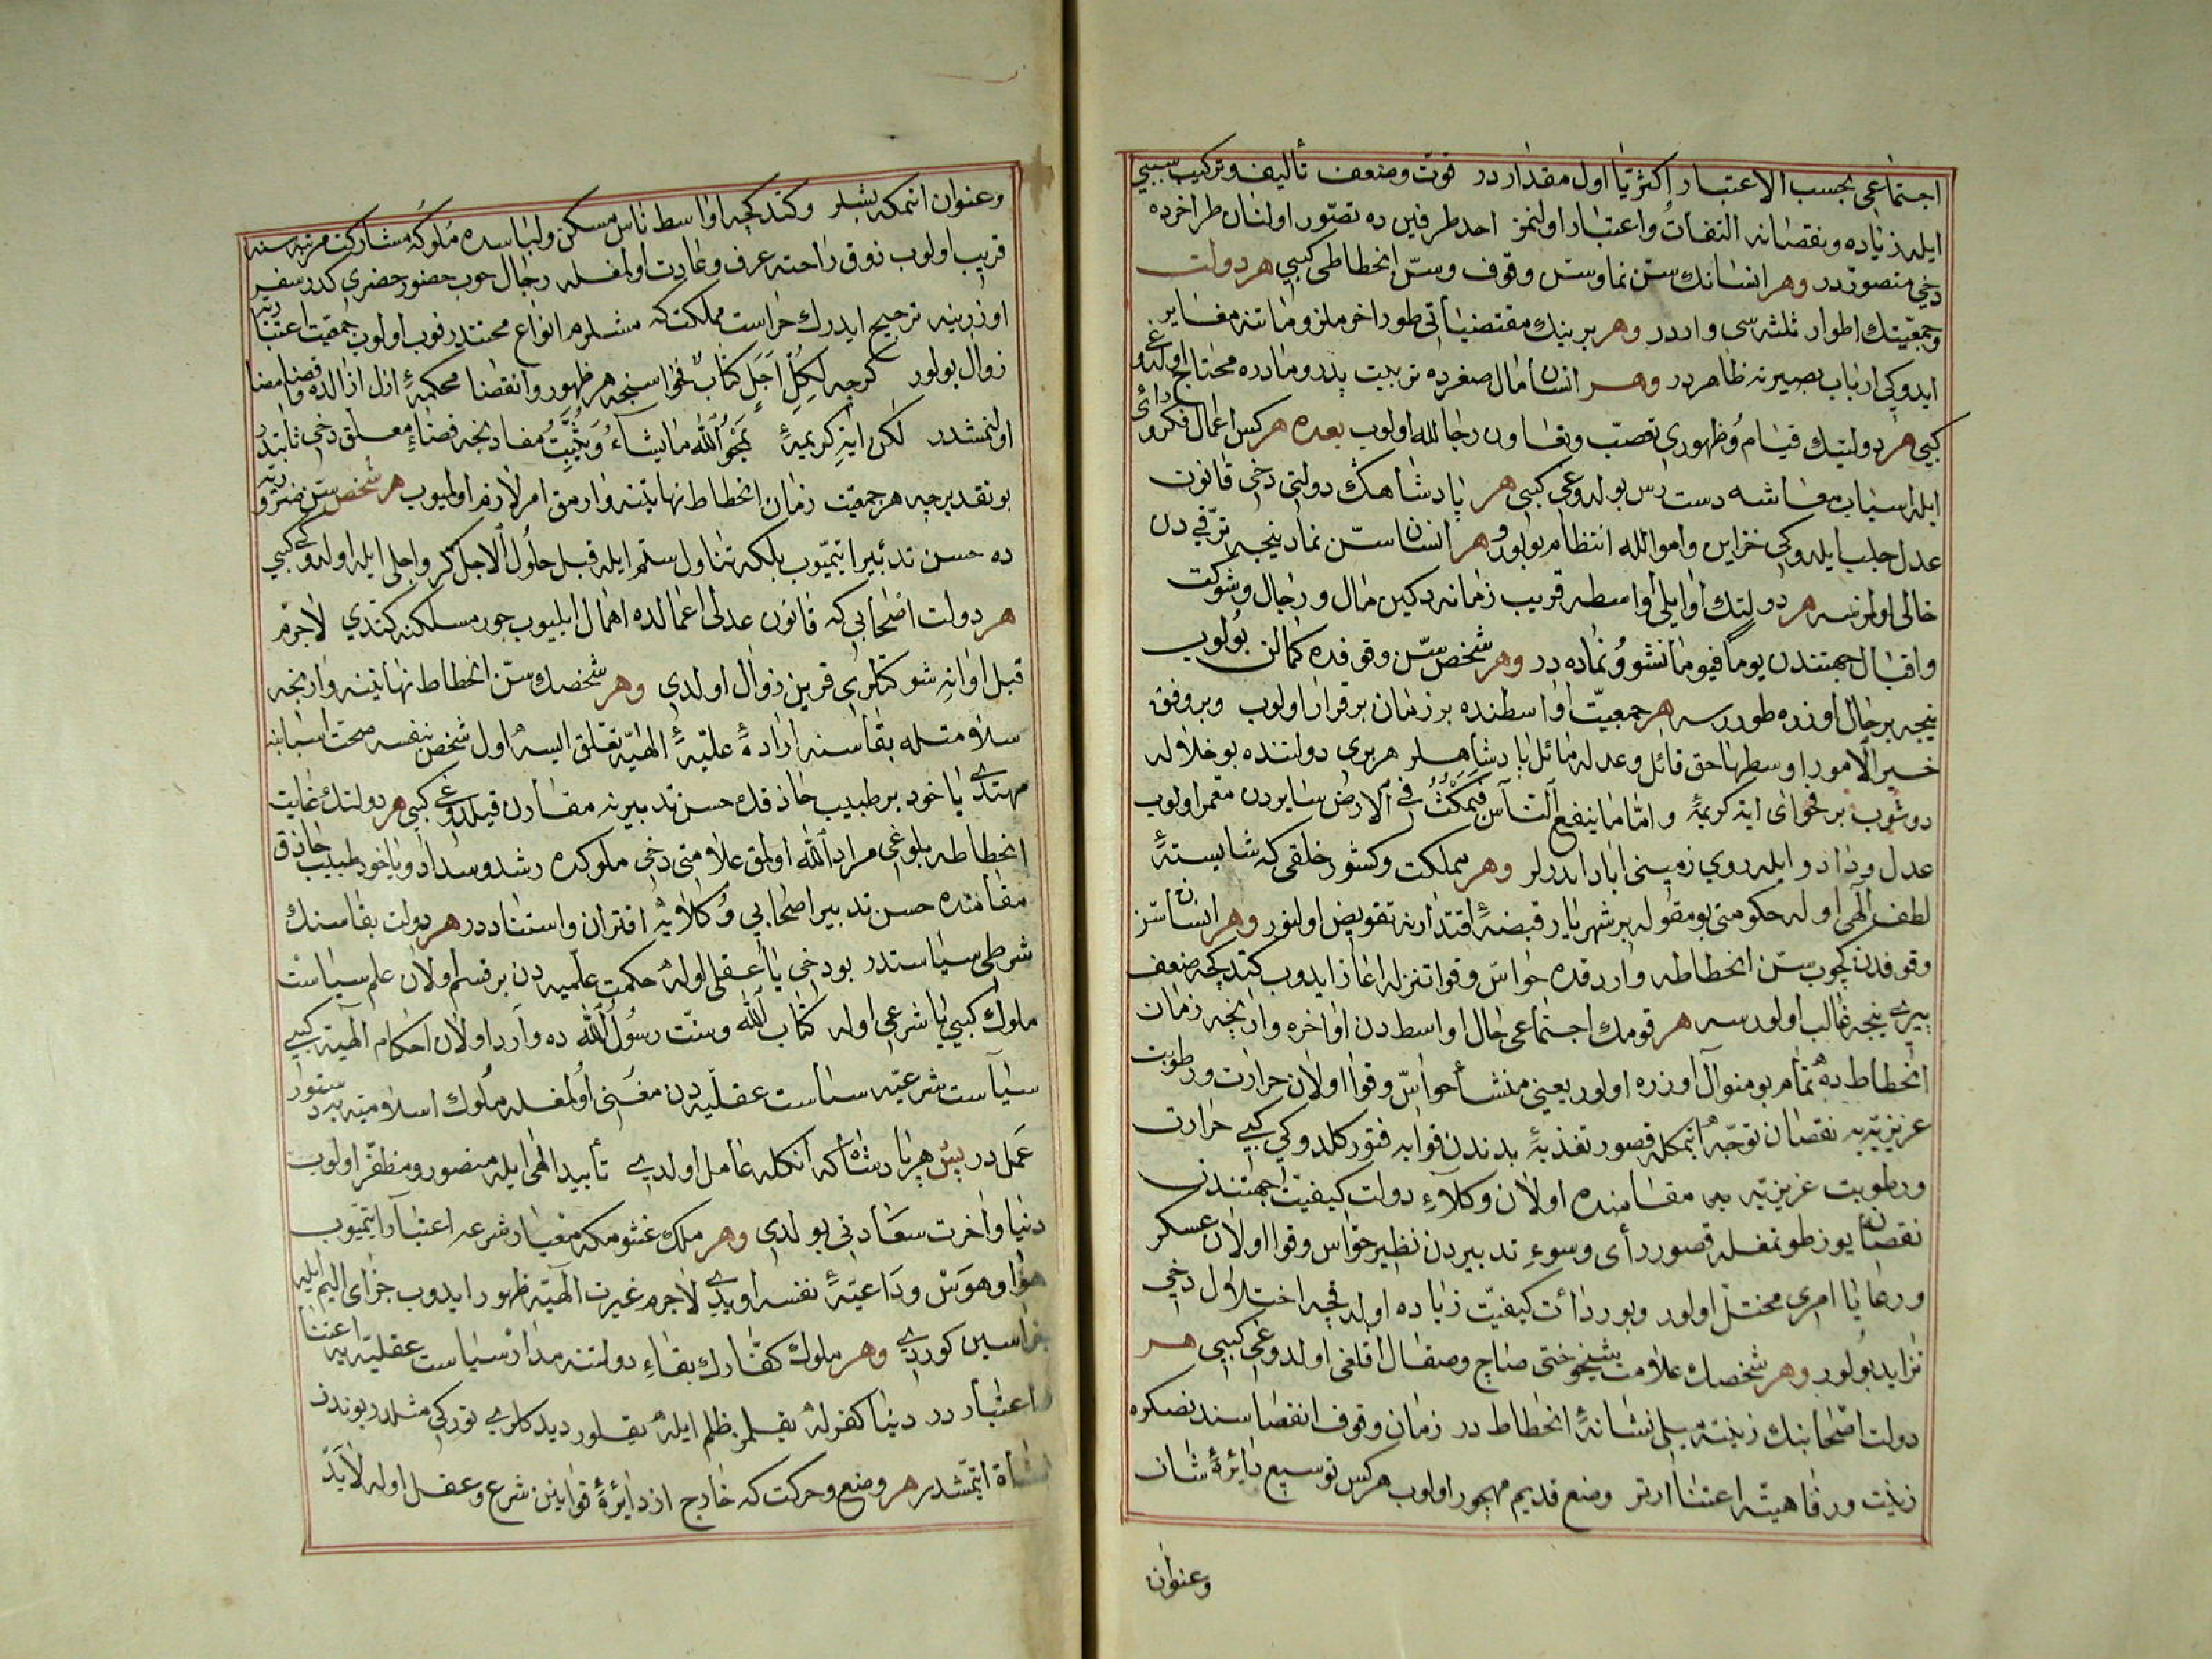 اجتماعى بحسب الاعتبار اكثريا اول مقدار در قوت وضعف تأليف وتركيب سببى
ايله زياده ونقصانه التفات واعتبار اولنمز احد طرفين ده تصور اولنان طرآخرده
دخى متصور در وهر انسانك سن نما وسن وقوف وسن انحطاطى كبى هر دولت
وجمعيتك اطوار ثلثه سى واردر وهر برينك مقتضياتى طور آخر ملزوماتنه مغاير
ايدوكى ارباب بصيرته ظاهر در وهر انسان مال صغرده تربيت پدر ومادره محتاج اولدوغى
كبى هر دولتك قيام وظهورى تعصب وتعاون رجالله اولوب بعده هركس اعمال فكر ورأى
ايله اسباب معاشه دست رس بولدوغى كبى هر پادشاهك دولتى دخى قانون
عدل جلب ايلدوكى خزاين واموالله انتظام بولور وهر انسان سن نمادينجه ترقيدن
خالى اولمزسه هر دولتك اوايلى اواسطه قريب زمانه دكين مال ورجال وشوكت
واقبال جهتندن يوما فيوما نشو ونماده در وهر شخص سن وقوفده كمالن بولوب
نيجه بر حال اوزره طوررسه هر جمعيت اواسطنده بر زمان برقرار اولوب وبروفق
خير الامور اوسطها حق قائل وعدله مائل پادشاهلر هر برى دولتنده بو خلال له
دوشوب بر فحواى آيه كريمه واما ما ينفع الناس فيمكث فى الارض سايردن معمر اولوب
عدل وداد وايله روى زمينى اباد ايدرلر وهر مملكت وكشور خلقى كه شايسته
لطف الهى اوله حكومتى بو مقوله بر شهريار قبضه اقتدارنه تفويض اولنور وهر انسان سن
وقوفدن كچوب سن انحطاطه واردقده حواس وقوا تنزله اغاز ايدوب كتدكجه ضعف
پيرى نيجه غالب اولورسه هر قومك اجتماعى حال اواسطدن اواخره وارنجه زمان
انحطاط ده تمام بو منوال اوزره اولور يعنى منشأ حواس وقوا اولان حرارت ورطوبت
غريزيه يه نقصان توجه اتمكله قصور تغذيه بدندن قوايه فتور كلدوكى كبى حرارت
ورطوبت غريزيه يه مقامنده اولان وكلاء دولت كيفيت جهتندن
نقصان يوز طوتمغله قصور رأى وسوء تدبيردن نظير حواس وقوا اولان عسكر
ورعايا امرى مختل اولور وبو ردائت كيفيت زياده اولدقجه اختلال دخى
تزايد بولور وهر شخصك علامت شيخوختى صاچ وصقال آقلغى اولدوغى كبى هر
دولت اصحابنك زينته ميلى نشانه انحطاط در زمان وقوف انقضاسندنصكره
زينت ورفاهيته اعتنا ارتر وضع قديم مهجور اولوب هركس توسيع دائره شان
وعنوان
وعنوان اتمكه بشلر وكتدكجه اواسط ناس مسكن ولباسده ملوكه مشاركت مرتبه سنه
قريب اولوب ذوق راحته عرف وعادت اولمغله رجال حرب حضور حضرى كدر سفر
اوزرينه ترجيح ايدرك حراست مملكت كه مستلزم انواع محنتدر فوت اولوب جمعيت اعتنا
زوال بولور كرچه لكل اجل كتاب فحواسنجه هر ظهور وانقضا محكمه ازل ازالده قضا وامضا
اولنمشدر لكن آيه كريمه يمحو الله ما يشاء ويثبت مفادنجه قضاء معلق دخى ثابتدر
بو تقديرجه هر جمعيت زمان انحطاط نهايتنه وارمق امر لازم اولميوب هر شخص سن
ده حسن تدبير ايتميوب بلكه تناول ستم ايله قبل حلول الاجل كز واجلى ايله اولدوغى كبى
هر دولت اصحابى كه قانون عدلى اعمالده اهمال ايليوب جور مسلكنه كتدى لاجرم
قبل اوانه شوكتلرى قرين زوال اولدى وهر شخصك سن انحطاط نهايتنه وارنجه
سلامتله بقاسنه اراده عليه الهيه تعلق ايسه اول شخص بنفسه صحت اسبابنه
مهتدى ياخود بر طبيب حاذقك حسن تدبيرنه مقارن قيلدوغى كبى هر دولتك غايت
انحطاطه بلوغى مراد الله اولمق علامتى دخى ملوكده رشد وسداد وياخود طبيب حاذق
مقامنده حسن تدبير اصحابى وكلايه اقتران واستناددر هر دولت بقاسنك
شرطى سياستدر بو دخى يا عقلى اوله حكمت علميه دن بر قسم اولان علم سياست
ملوك كبى يا شرعى اوله كتاب الله وسنت رسول الله ده وارد اولان احكام الهيه كبى
سياست شرعيه سياست عقليه دن مغنى اولمغله ملوك اسلاميه يه دستور
عمل در پس هر پادشاه كه انكله عامل اولدى تأييد الهى ايله منصور ومظفر اولوب
دنيا واخرت سعادتى بولدى وهر ملك غشوم كه معيار شرعه اعتبار ايتميوب
هوا وهوس وداعيه نفسه اويدى لاجرم غيرت الهيه ظهور ايدوب جزاى اليم ايله
جزاسين كوردى وهر ملوك كفارك بقاء دولتنه مدار سياست عقليه يه اعتنا
واعتبار در دنيا كفرله يقلمز ظلم ايله يقلور ديدكلرى توركى مثلدر بوندن
نشأة اتمشدر هر وضع وحركت كه خارج از دائره قوانين شرع وعقل اوله لابد